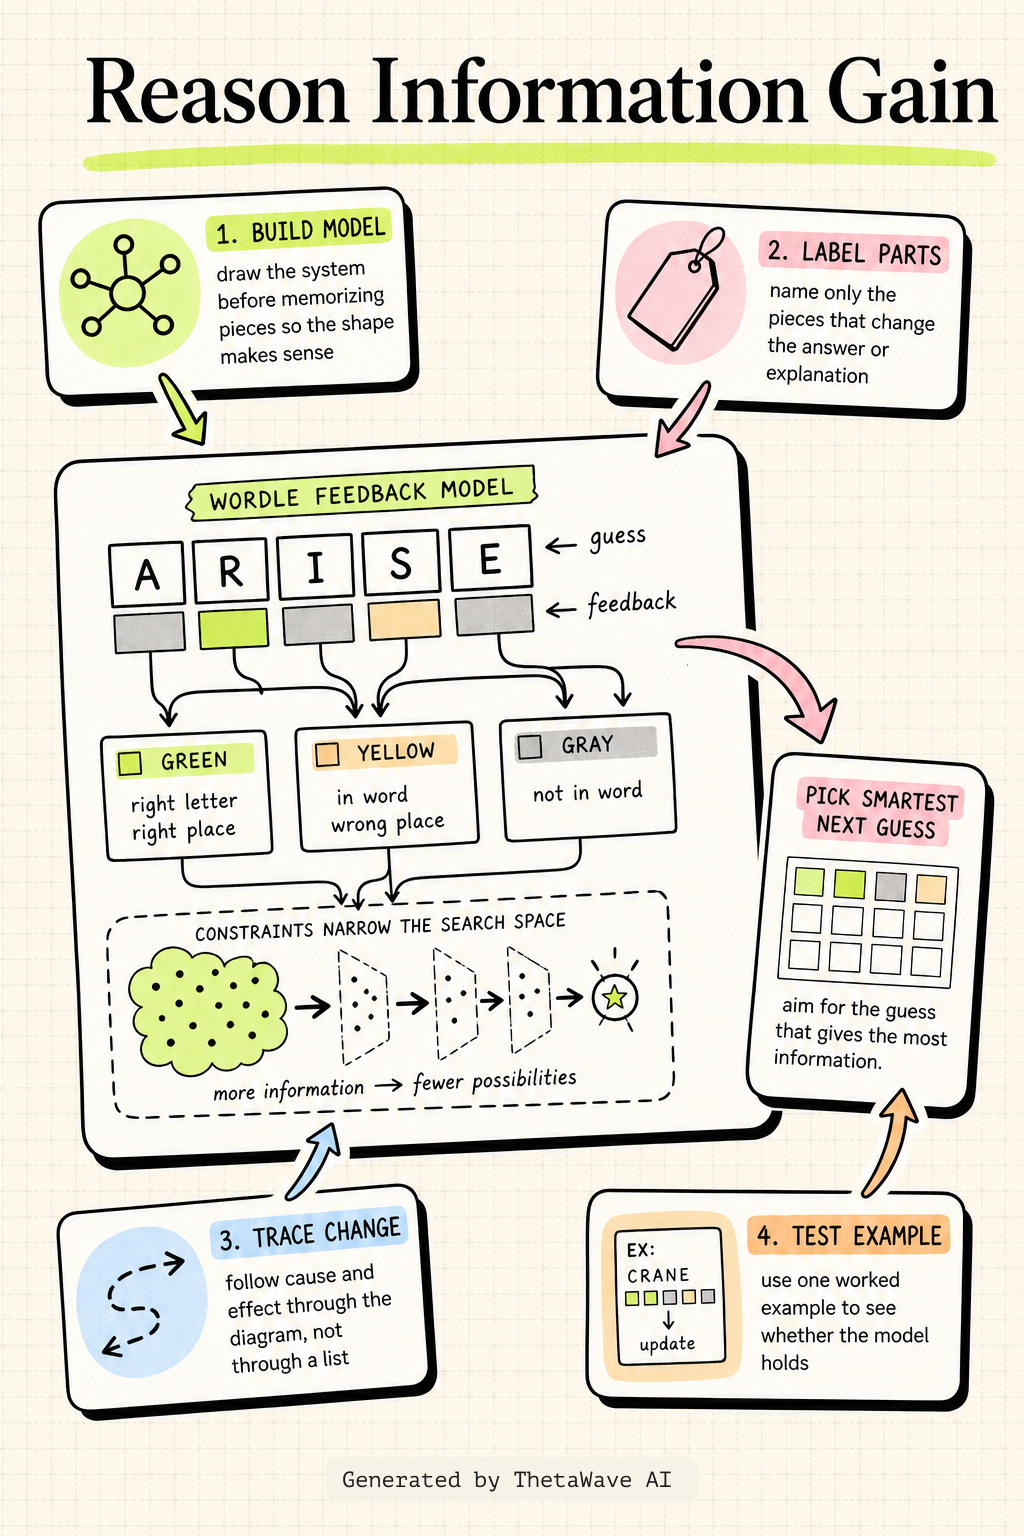 Reason Information Gain
1. BUILD MODEL
draw the system
before memorizing
pieces so the shape
makes sense
2. LABEL PARTS
name only the
pieces that change
the answer or
explanation
WORDLE FEEDBACK MODEL
A R I S E
← guess
← feedback
GREEN
right letter
right place
YELLOW
in word
wrong place
GRAY
not in word
CONSTRAINTS NARROW THE SEARCH SPACE
more information → fewer possibilities
PICK SMARTEST
NEXT GUESS
aim for the guess
that gives the most
information.
3. TRACE CHANGE
follow cause and
effect through the
diagram, not
through a list
EX:
CRANE
update
4. TEST EXAMPLE
use one worked
example to see
whether the model
holds
Generated by ThetaWave AI